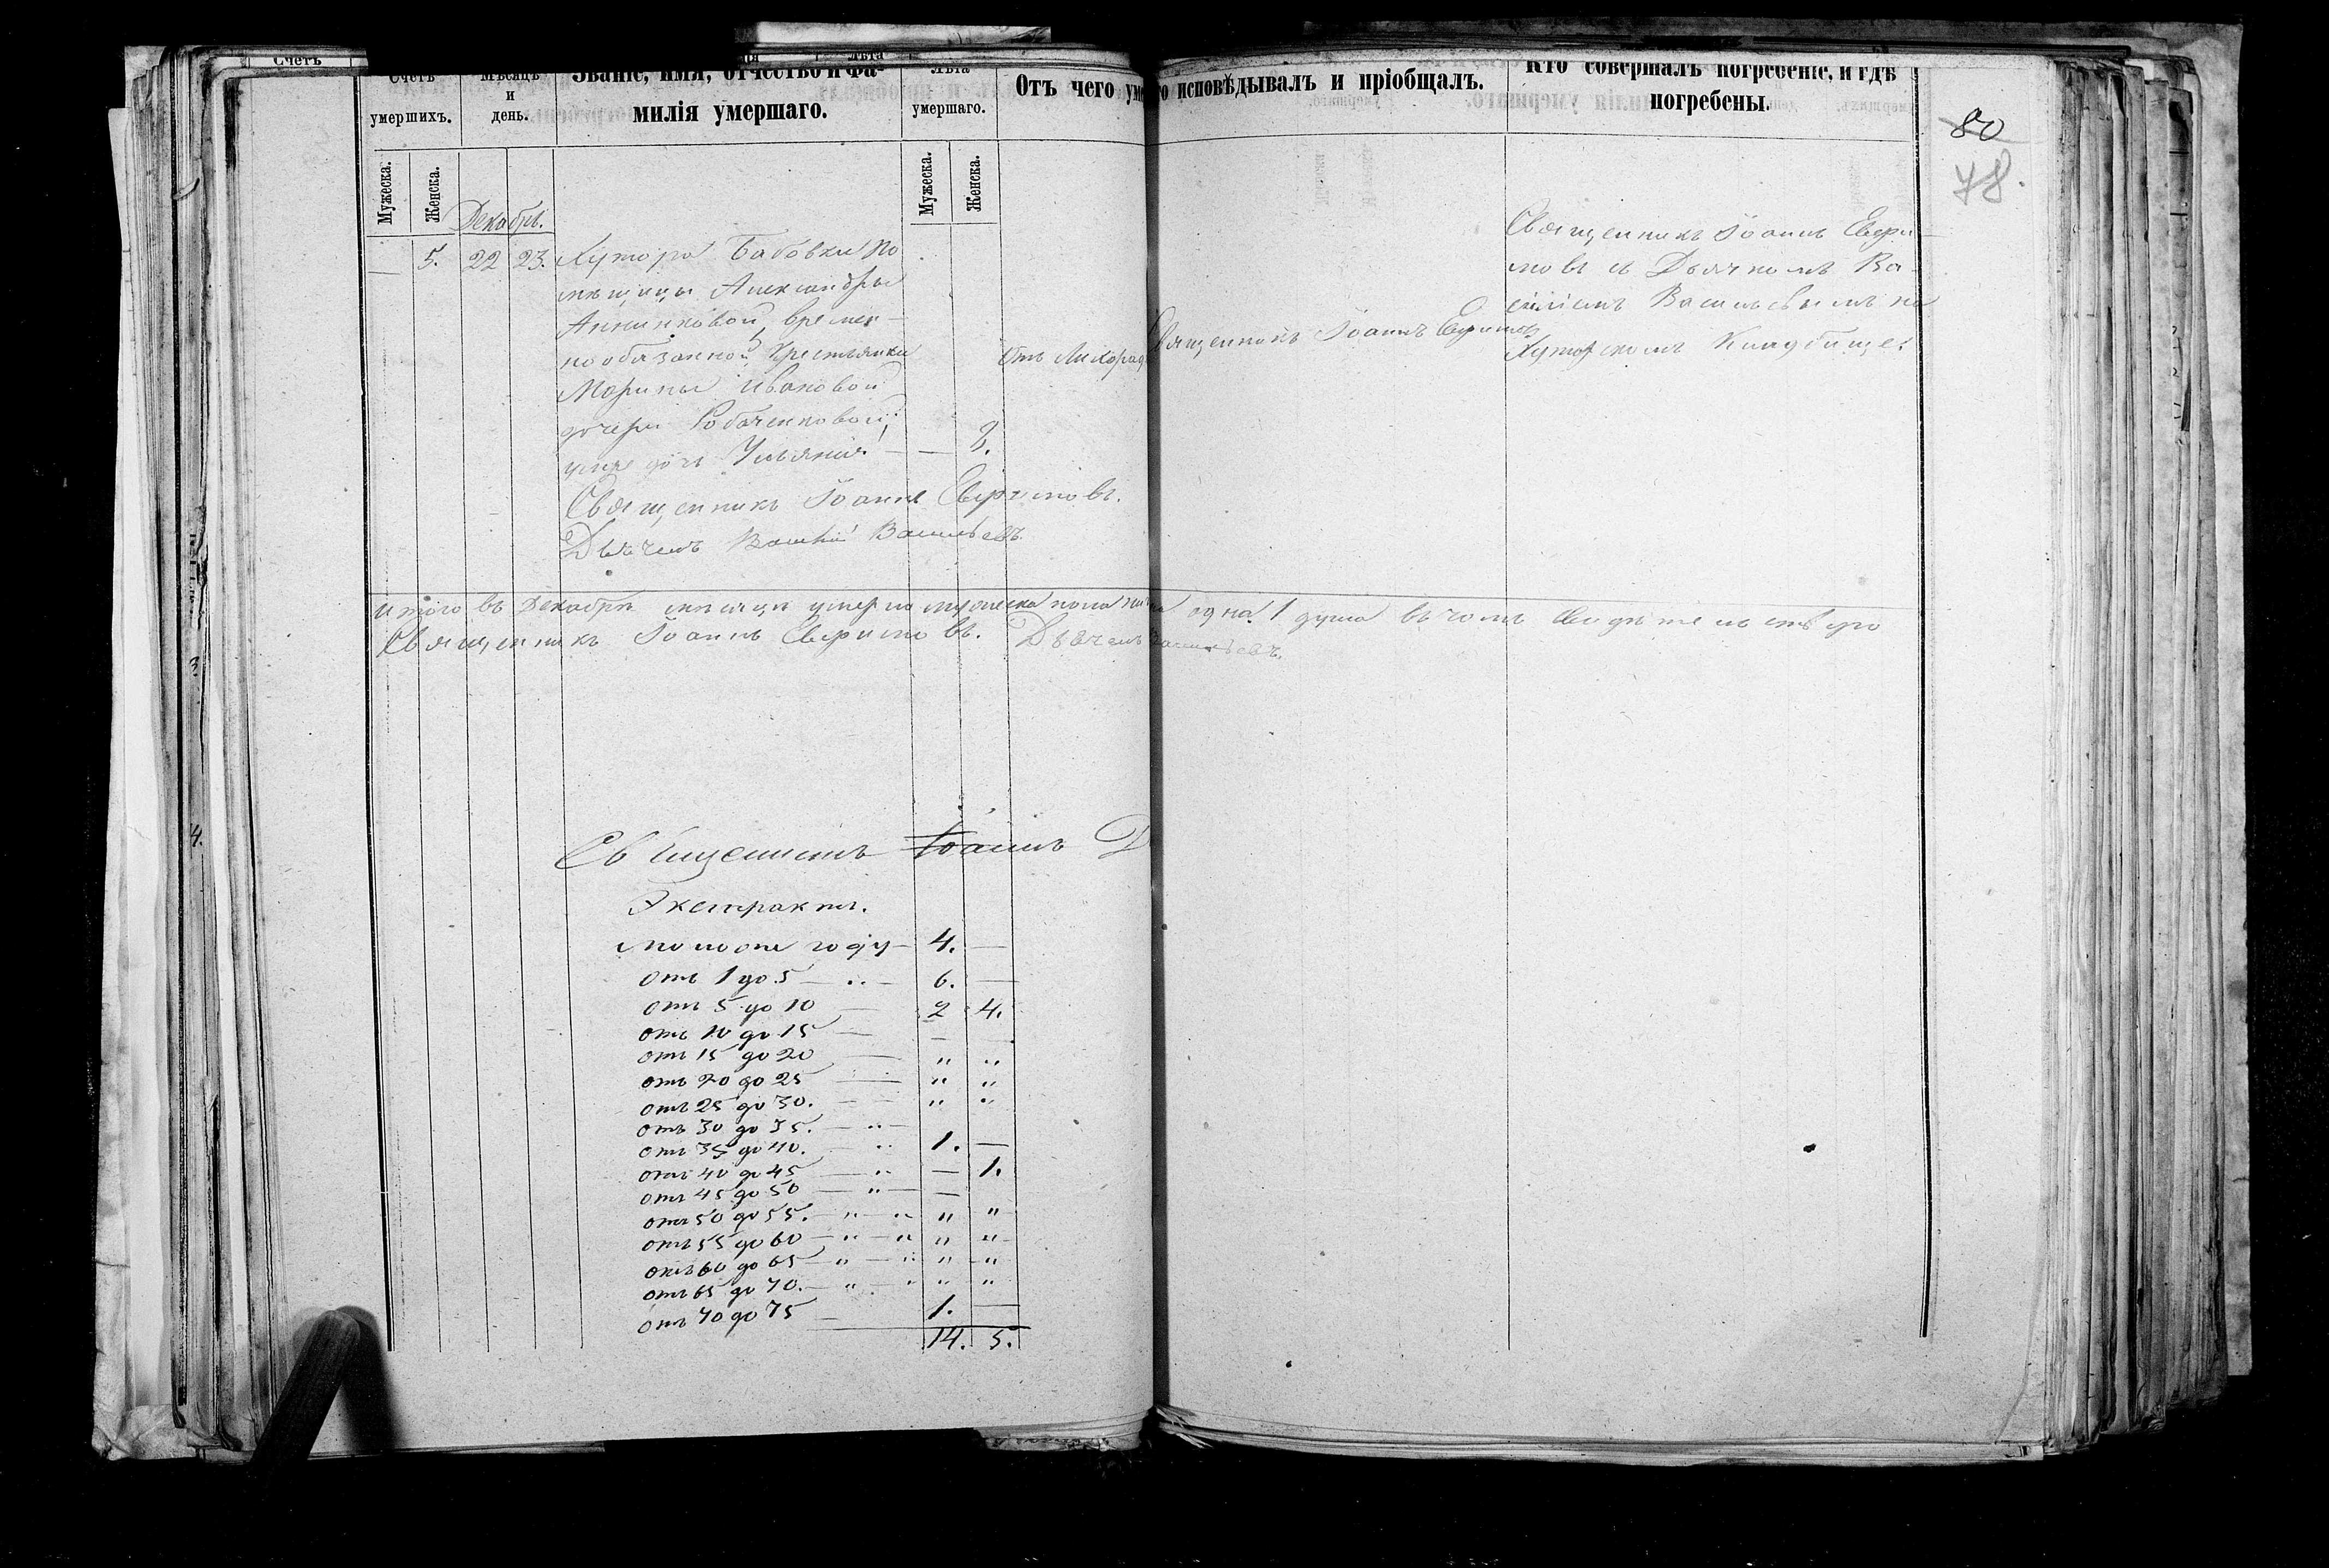 Счетъ
Счетъ умершихъ.
Мѣсяцъ и день.
Званіе, имя, отчество и фа-
милія умершаго.
Лѣта умершаго.
Отъ чего
исповѣдывалъ и пріобщалъ.
Кто совершалъ погребеніе, и гдѣ
погребены.
80
78.
Мужеска.
Женска.
Мужеска.
Женска.
Декабрь.
— 5. 22 23. Хутора Бабовки по
мѣщицы Александры
Анненковой, времен-
нообязанной крестьянки
Марины Ивановой
дочери
дочь Ульянія — — 8.
Отъ
Священникъ Іоаннъ
Священникъ Іоаннъ
новъ съ Дьячкомъ Ва-
силіемъ Васильевымъ на
Хуторскомъ Кладбище.
Священникъ Іоаннъ
Дьячекъ Василій Васильевъ
Итого въ Декабрѣ мѣсяцѣ умерло женска пола одна 1 душа въ чемъ свидѣтельствую
Священникъ Іоаннъ Дьячекъ Васильевъ.
Священникъ Іоаннъ
Экстрактъ.
году — 4. —
отъ 1 до 5 — 6. —
отъ 5 до 10 — 2 4.
отъ 10 до 15 — —
отъ 15 до 20 — " "
отъ 20 до 25 — " "
отъ 25 до 30. — " "
отъ 30 до 35. — " —
отъ 35 до 40. " 1. —
отъ 40 до 45 — " — 1.
отъ 45 до 50 — " — —
отъ 50 до 55. — " — " " "
отъ 55 до 60 — " — " " "
отъ 60 до 65 — " — " " "
отъ 65 до 70. — " — " " "
отъ 70 до 75 — 1. —
14. 5.